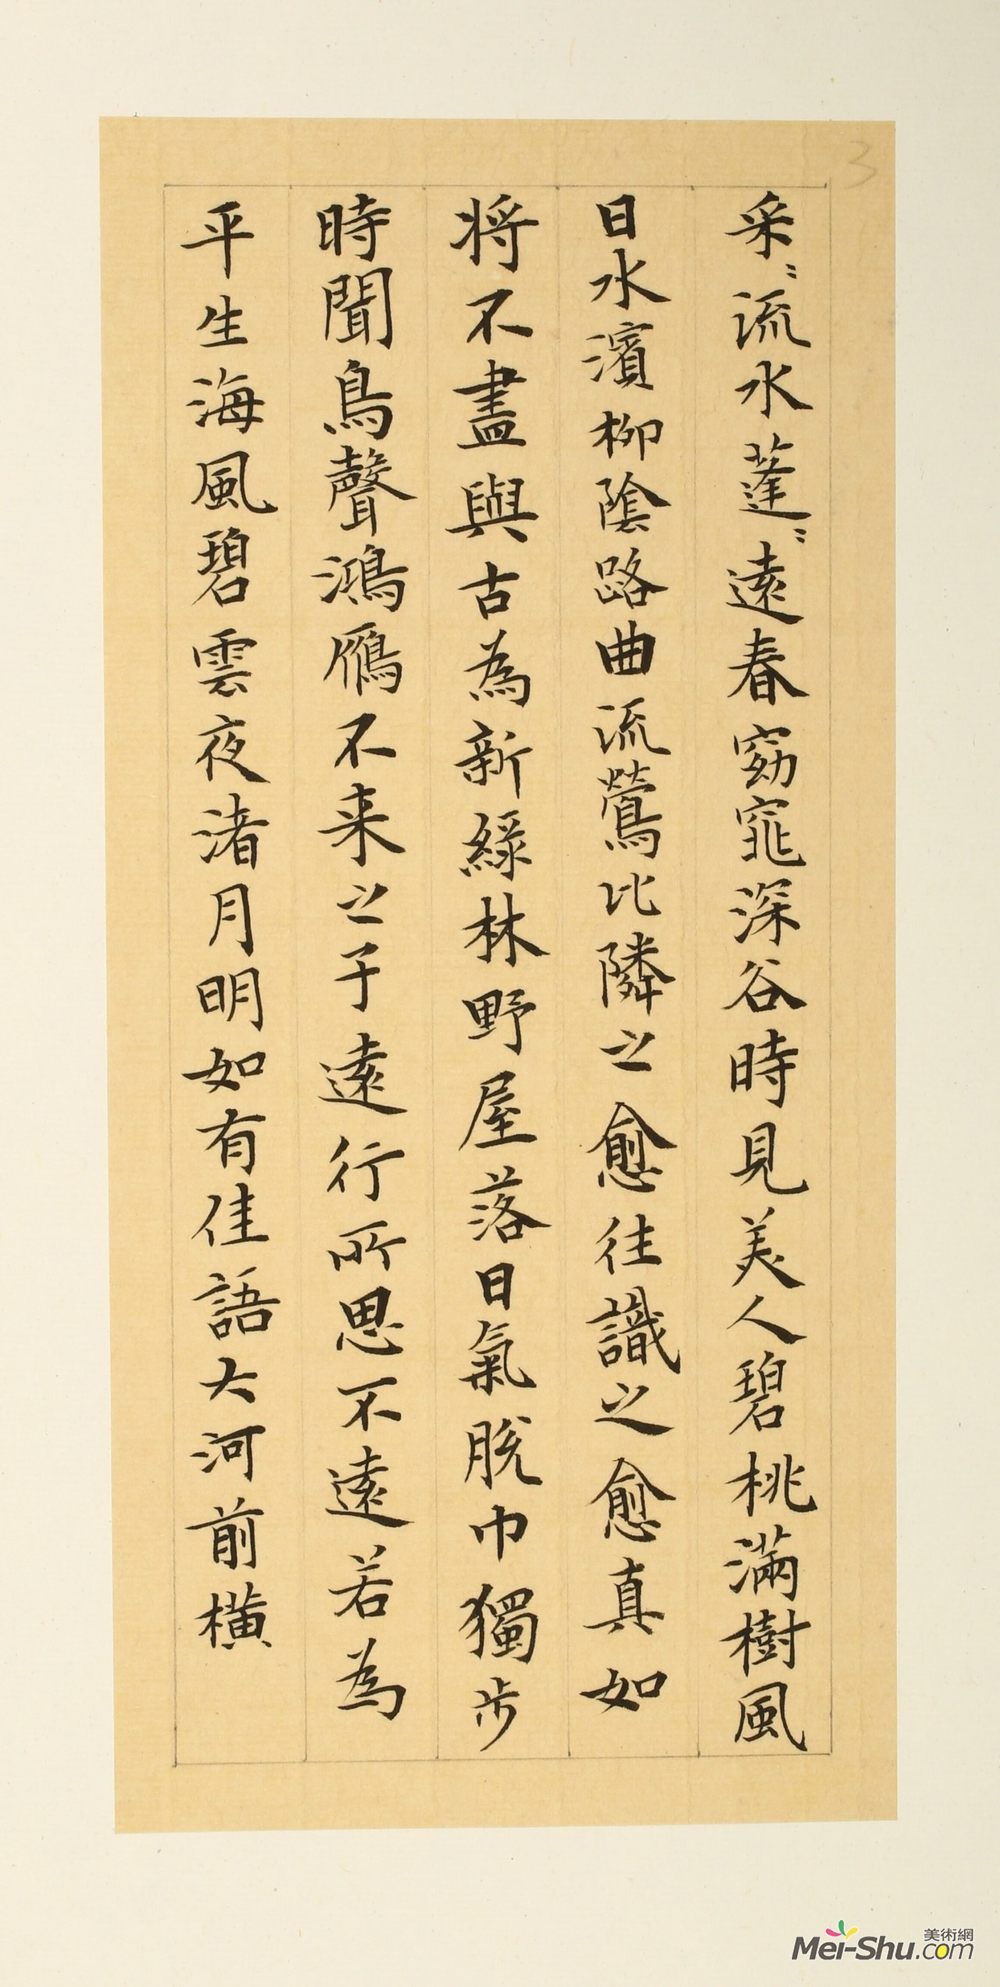 采〻流水蓬〻遠春窈窕深谷時見美人碧桃滿樹風
日水濱柳陰路曲流鶯比隣之愈往識之愈真如
将不盡與古為新緑林野屋落日氣脫巾獨步
時聞鳥聲鴻鴈不来之子遠行所思不遠若為
平生海風碧雲夜渚月明如有佳語大河前橫
3
美術網
Mei-Shu.com